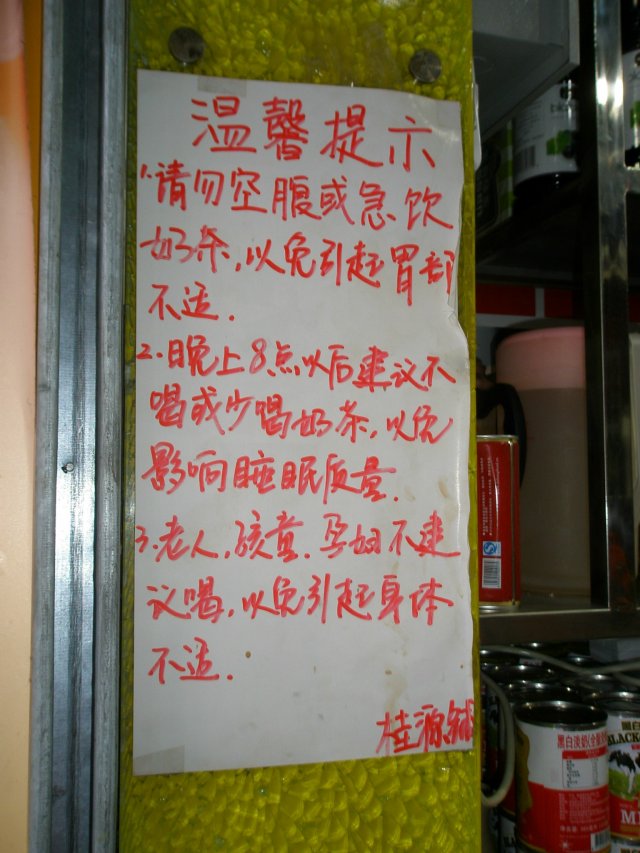 温馨提示
1.请勿空腹或急饮
奶茶,以免引起胃部
不适.
2.晚上8点以后建议不
喝或少喝奶茶,以免
影响睡眠质量.
3.老人.孩童.孕妇不建
议喝,以免引起身体
不适.
桂源铺
黑白淡奶(全脂
BLACK